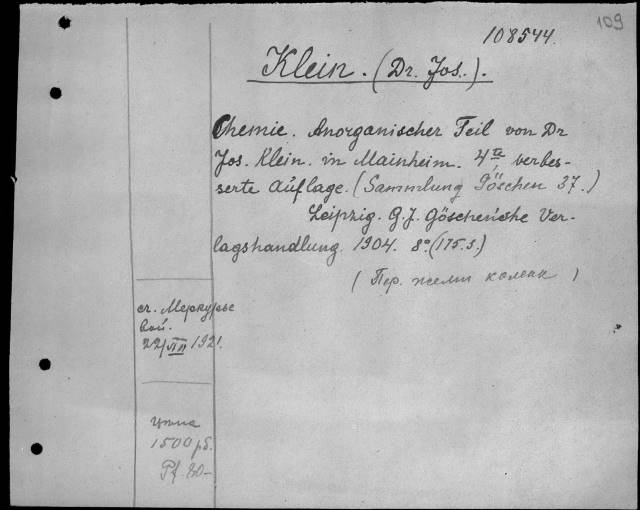 109
108544.
Klein. (Dr. Jos.).
Chemie. Anorganischer Teil von Dr
Jos. Klein. in Mainheim. 4te verbes-
serte Auflage. (Sammlung Göschen 37.)
Leipzig. G. J. Göschen'sche Ver-
lagshandlung. 1904. 8° (175.S.)
( Пер.
ст. Меркурье
вой.
22/VII 1921.
цена
1500 рб.
Pf. 80-